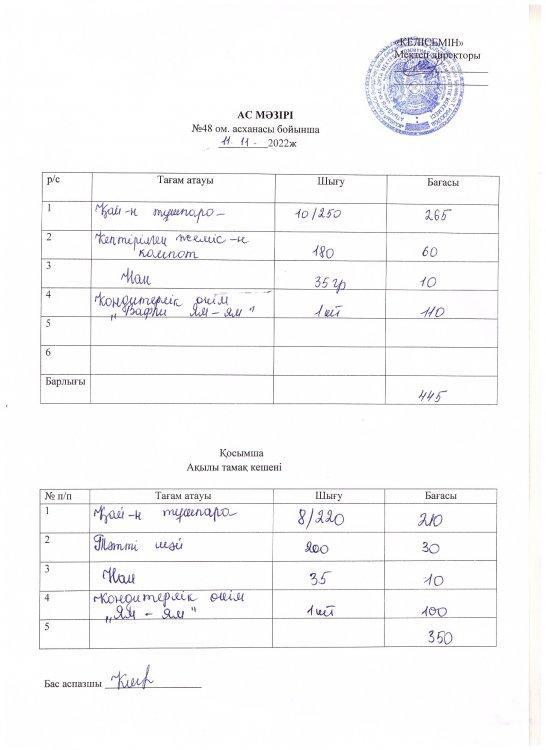 «КЕЛІСЕМІН»
Мектеп директоры
АС МӘЗІРІ
№48 ом. асханасы бойынша
11. 11. 2022ж
р/с Тағам атауы Шығу Бағасы
1 Қай-н тушпара- 10/250 265
2 Кептірілген жеміс-н компот 180 60
3 Нан 35 гр 10
4 Кондитерлік өнім
"Вафли Ям-ям" 1 шт 110
5
6
Барлығы 445
Қосымша
Ақылы тамақ кешені
№ п/п Тағам атауы Шығу Бағасы
1 Қай-н тушпара 8/220 210
2 Тәтті шәй 200 30
3 Нан 35 10
4 Кондитерлік өнім
"Ям-Ям" 1 шт 100
5 350
Бас аспазшы